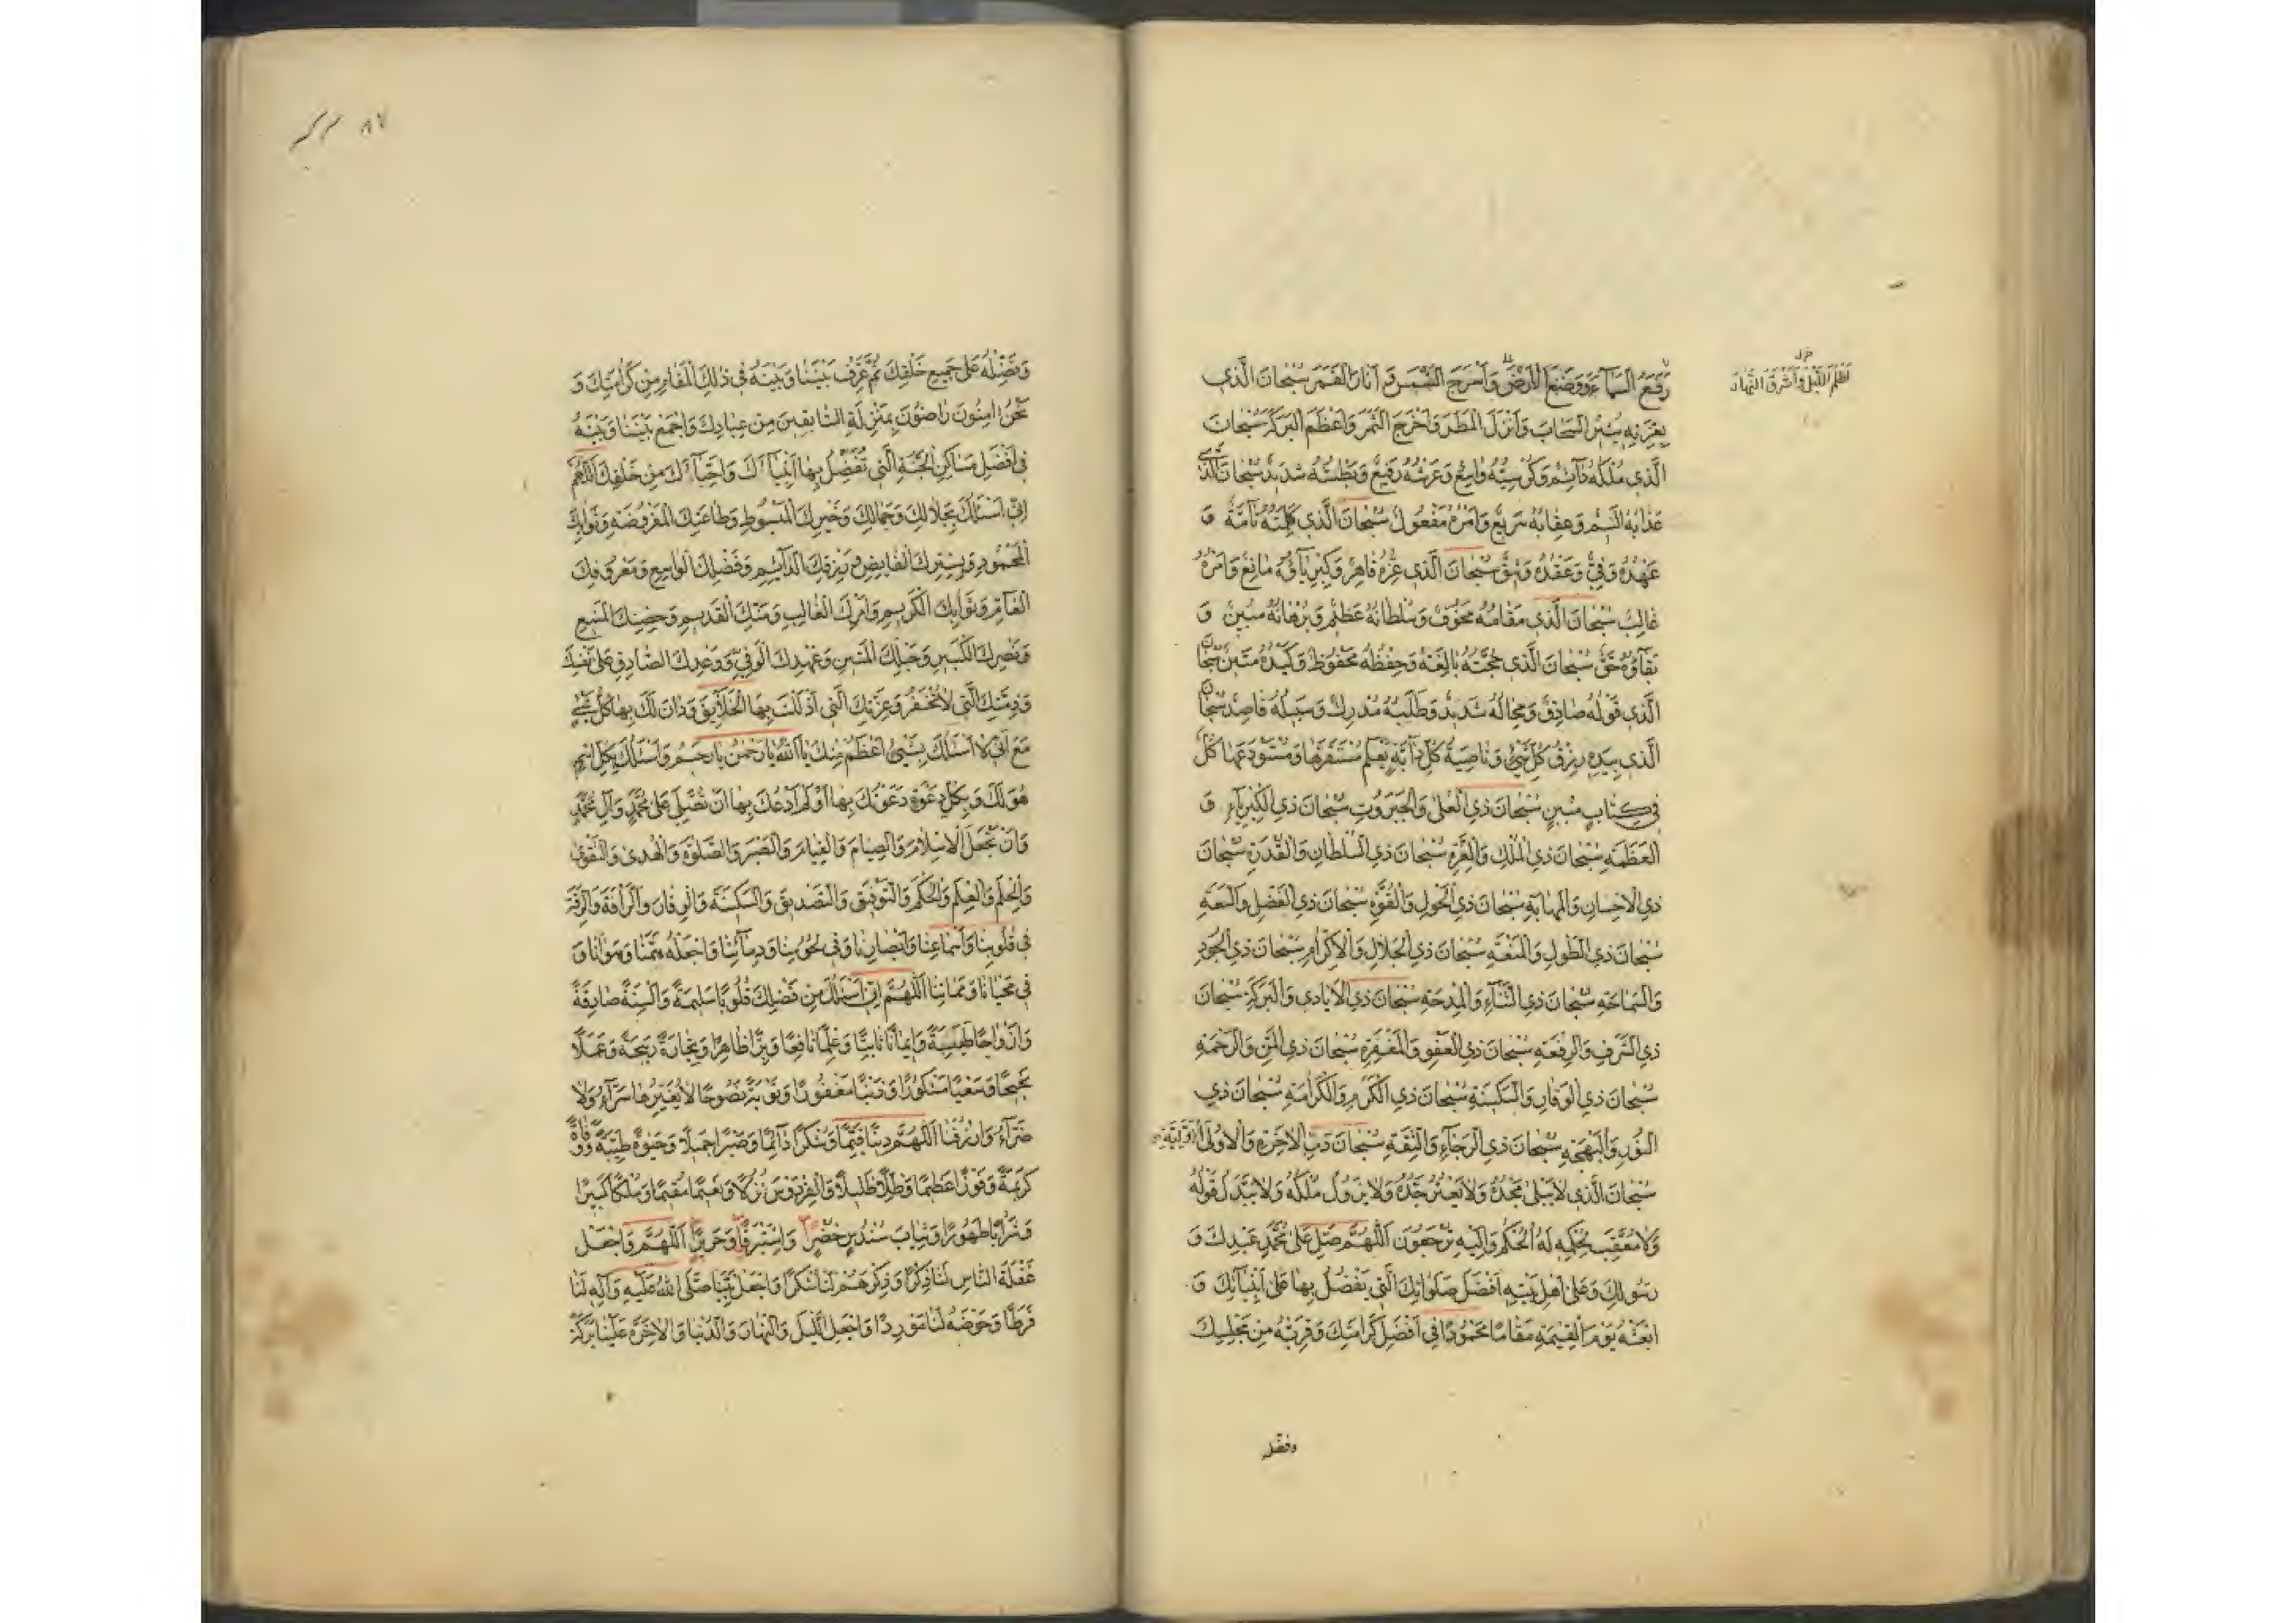 رَفَعَ السَّمَاءَ وَوَضَعَ الْأَرْضَ وَأَسْرَجَ الشَّمْسَ وَأَنَارَ الْقَمَرَ سُبْحَانَ الَّذِي
أَظْلَمَ اللَّيْلَ وَأَشْرَقَ النَّهَارَ
بِعِزَّتِهِ يُسَيِّرُ السَّحَابَ وَأَنْزَلَ الْمَطَرَ وَأَخْرَجَ الثَّمَرَ وَأَعْظَمَ الْبَرَكَةَ سُبْحَانَ
الَّذِي مُلْكُهُ دَآئِمٌ وَكُرْسِيُّهُ وَاسِعٌ وَعَرْشُهُ رَفِيعٌ وَبَطْشُهُ شَدِيدٌ سُبْحَانَ الَّذِي
عَذَابُهُ أَلِيمٌ وَعِقَابُهُ سَرِيعٌ وَأَمْرُهُ مَفْعُولٌ سُبْحَانَ الَّذِي كَلِمَتُهُ تَآمَّةٌ وَ
عَهْدُهُ وَفِيٌّ وَعَقْدُهُ وَثِيقٌ سُبْحَانَ الَّذِي عِزُّهُ قَاهِرٌ وَكِبْرِيَآؤُهُ مَانِعٌ وَأَمْرُهُ
غَالِبٌ سُبْحَانَ الَّذِي مَقَامُهُ مَخُوفٌ وَسُلْطَانُهُ عَظِيمٌ وَبُرْهَانُهُ مُبِينٌ وَ
بَقَآؤُهُ حَقٌّ سُبْحَانَ الَّذِي حُجَّتُهُ بَالِغَةٌ وَحِفْظُهُ مَحْفُوظٌ وَكَيْدُهُ مَتِينٌ سُبْحَانَ
الَّذِي قَوْلُهُ صَادِقٌ وَمِحَالُهُ شَدِيدٌ وَطَلَبُهُ مُدْرِكٌ وَسَبِيلُهُ قَاصِدٌ سُبْحَانَ
الَّذِي بِيَدِهِ رِزْقُ كُلِّ شَيْءٍ وَنَاصِيَةُ كُلِّ دَآبَّةٍ يَعْلَمُ مُسْتَقَرَّهَا وَمُسْتَوْدَعَهَا كُلٌّ
فِي كِتَابٍ مُبِينٍ سُبْحَانَ ذِي الْعُلَى وَالْجَبَرُوتِ سُبْحَانَ ذِي الْكِبْرِيَآءِ وَ
الْعَظَمَةِ سُبْحَانَ ذِي الْمُلْكِ وَالْعِزَّةِ سُبْحَانَ ذِي السُّلْطَانِ وَالْقُدْرَةِ سُبْحَانَ
ذِي الْإِحْسَانِ وَالْمَهَابَةِ سُبْحَانَ ذِي الْحَوْلِ وَالْقُوَّةِ سُبْحَانَ ذِي الْفَضْلِ وَالسَّعَةِ
سُبْحَانَ ذِي الطَّوْلِ وَالْمَنْعَةِ سُبْحَانَ ذِي الْجَلَالِ وَالْإِكْرَامِ سُبْحَانَ ذِي الْجُودِ
وَالسَّمَاحَةِ سُبْحَانَ ذِي الثَّنَآءِ وَالْمِدْحَةِ سُبْحَانَ ذِي الْأَيَادِي وَالْبَرَكَةِ سُبْحَانَ
ذِي الشَّرَفِ وَالرِّفْعَةِ سُبْحَانَ ذِي الْعَفْوِ وَالْمَغْفِرَةِ سُبْحَانَ ذِي الْمَنِّ وَالرَّحْمَةِ
سُبْحَانَ ذِي الْوَقَارِ وَالسَّكِينَةِ سُبْحَانَ ذِي الْكَرَمِ وَالْكَرَامَةِ سُبْحَانَ ذِي
النُّورِ وَالْبَهْجَةِ سُبْحَانَ ذِي الرَّجَآءِ وَالثِّقَةِ سُبْحَانَ رَبِّ الْآخِرَةِ وَالْأُولَى
سُبْحَانَ الَّذِي لَا يَبْلَى مَجْدُهُ وَلَا يَعْثُرُ جَدُّهُ وَلَا يَزُولُ مُلْكُهُ وَلَا يُبَدَّلُ قَوْلُهُ
وَلَا مُعَقِّبَ لِحُكْمِهِ لَهُ الْحُكْمُ وَإِلَيْهِ تُرْجَعُونَ اللَّهُمَّ صَلِّ عَلَى مُحَمَّدٍ عَبْدِكَ وَ
رَسُولِكَ وَعَلَى أَهْلِ بَيْتِهِ أَفْضَلَ صَلَوَاتِكَ الَّتِي تَفْضُلُ بِهَا عَلَى أَنْبِيَآئِكَ وَ
ابْعَثْهُ يَوْمَ الْقِيمَةِ مَقَامًا مَحْمُودًا فِي أَفْضَلِ كَرَامَتِكَ وَقَرِّبْهُ مِنْ مَجْلِسِكَ
وفضّله
٨٧
وَفَضِّلْهُ عَلَى جَمِيعِ خَلْقِكَ ثُمَّ عَرِّفْ بَيْنَنَا وَبَيْنَهُ فِي ذَلِكَ الْمَقَامِ مِنْ كَرَامَتِكَ وَ
نَحْنُ آمِنُونَ رَاضُونَ بِمَنْزِلَةِ السَّابِقِينَ مِنْ عِبَادِكَ وَاجْمَعْ بَيْنَنَا وَبَيْنَهُ
فِي أَفْضَلِ مَسَاكِنِ الْجَنَّةِ الَّتِي تُفَضِّلُ بِهَا أَنْبِيَآءَكَ وَأَحِبَّآءَكَ مِنْ خَلْقِكَ اللَّهُمَّ
إِنِّي أَسْئَلُكَ بِجَلَالِكَ وَجَمَالِكَ وَخَيْرِكَ الْمَبْسُوطِ وَطَاعَتِكَ الْمَفْرُوضَةِ وَثَوَابِكَ
الْمَحْمُودِ وَبِسِتْرِكَ الْفَايِضِ وَبِرِزْقِكَ الدَّآئِمِ وَفَضْلِكَ الْوَاسِعِ وَمَعْرُوفِكَ
الْعَآمِّ وَثَوَابِكَ الْكَرِيمِ وَأَمْرِكَ الْغَالِبِ وَمَنِّكَ الْقَدِيمِ وَحِصْنِكَ الْمَنِيعِ
وَنَصْرِكَ الْكَبِيرِ وَحَبْلِكَ الْمَتِينِ وَعَهْدِكَ الْوَفِيِّ وَوَعْدِكَ الصَّادِقِ عَلَى نَفْسِكَ
وَذِمَّتِكَ الَّتِي لَا تُخْفَرُ وَعِزَّتِكَ الَّتِي أَذْلَلْتَ بِهَا الْخَلَآيِقَ وَدَانَ لَكَ بِهَا كُلُّ شَيْءٍ
مَعَ أَنِّي لَا أَسْئَلُكَ بِشَيْءٍ أَعْظَمَ مِنْكَ يَا اللَّهُ يَا رَحْمَنُ يَا رَحِيمُ وَأَسْئَلُكَ بِكُلِّ اسْمٍ
هُوَ لَكَ وَبِكُلِّ دَعْوَةٍ دَعَوْتُكَ بِهَا أَوْ لَمْ أَدْعُكَ بِهَا أَنْ تُصَلِّيَ عَلَى مُحَمَّدٍ وَآلِ مُحَمَّدٍ
وَأَنْ تَجْعَلَ الْإِسْلَامَ وَالصِّيَامَ وَالْقِيَامَ وَالصَّبْرَ وَالصَّلَوةَ وَالْهُدَى وَالتَّقْوَى
وَالْحِلْمَ وَالْعِلْمَ وَالْحُكْمَ وَالتَّوْفِيقَ وَالتَّصْدِيقَ وَالسَّكِينَةَ وَالْوَقَارَ وَالرَّأْفَةَ وَالرِّقَّةَ
فِي قُلُوبِنَا وَأَسْمَاعِنَا وَأَبْصَارِنَا وَفِي لُحُومِنَا وَدِمَآئِنَا وَاجْعَلْهُ هَمَّنَا وَهَوَانَا وَ
فِي مَحْيَانَا وَمَمَاتِنَا اللَّهُمَّ إِنِّي أَسْئَلُكَ مِنْ فَضْلِكَ قُلُوبًا سَلِيمَةً وَأَلْسِنَةً صَادِقَةً
وَأَزْوَاجًا طَيِّبَةً وَإِيمَانًا ثَابِتًا وَعِلْمًا نَافِعًا وَبِرًّا ظَاهِرًا وَتِجَارَةً رَبِحَةً وَعَمَلًا
نَجِيحًا وَسَعْيًا مَشْكُورًا وَذَنْبًا مَغْفُورًا وَتَوْبَةً نَصُوحًا لَا يُغَيِّرُهَا سَرَّآءُ وَلَا
ضَرَّآءُ وَارْزُقْنَا اللَّهُمَّ دِينًا قَيِّمًا وَشُكْرًا دَآئِمًا وَصَبْرًا جَمِيلًا وَحَيَوةً طَيِّبَةً وَوَفَاةً
كَرِيمَةً وَفَوْزًا عَظِيمًا وَظِلًّا ظَلِيلًا وَالْفِرْدَوْسَ نُزُلًا وَنَعِيمًا مُقِيمًا وَمُلْكًا كَبِيرًا
وَشَرَابًا طَهُورًا وَثِيَابَ سُنْدُسٍ خُضْرٍ وَإِسْتَبْرَقًا وَحَرِيرًا اللَّهُمَّ وَاجْعَلْ
غَفْلَةَ النَّاسِ لَنَا ذِكْرًا وَذِكْرَهُمْ لَنَا شُكْرًا وَاجْعَلْ نَبِيَّنَا صَلَّى اللهُ عَلَيْهِ وَآلِهِ لَنَا
فَرَطًا وَحَوْضَهُ لَنَا مَوْرِدًا وَاجْعَلِ اللَّيْلَ وَالنَّهَارَ وَالدُّنْيَا وَالْآخِرَةَ عَلَيْنَا بَرَكَةً